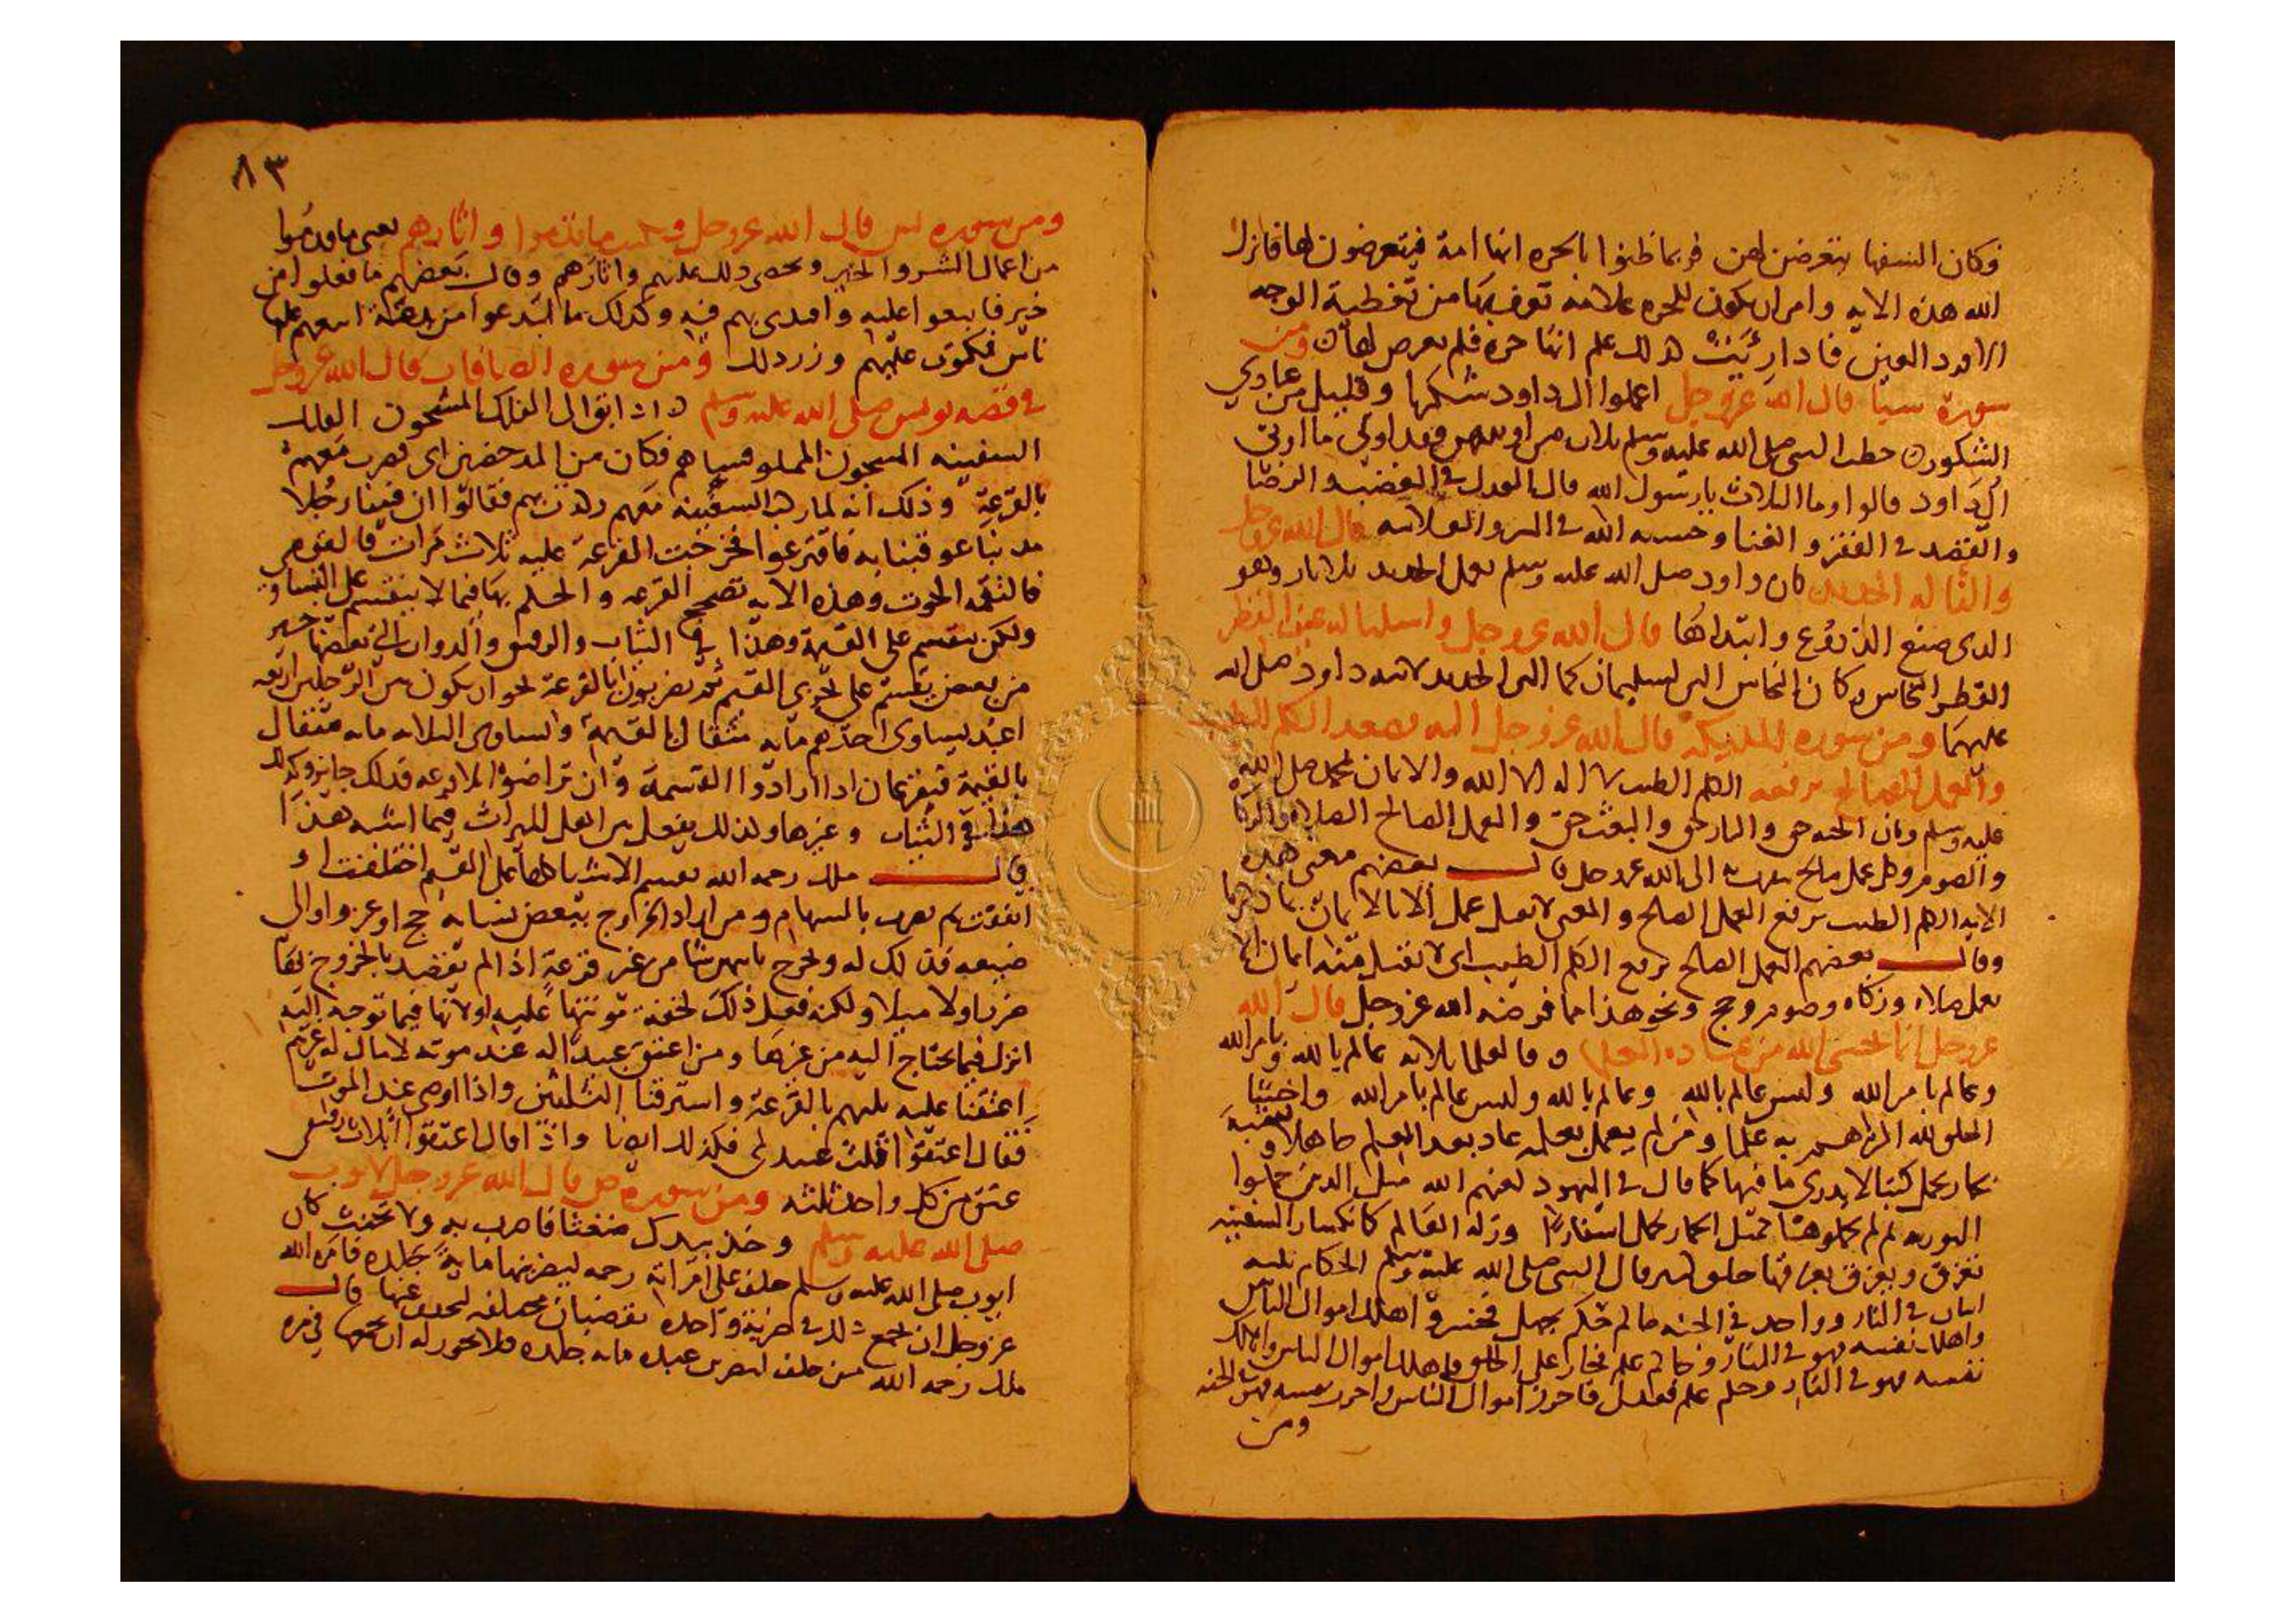 فكان السفها يتعرضن لهن فربما ظنوا بالحره انها امة فيتعرضون لها فانزل
الله هذه الايه وامر ان يكون للحره علامة تعرف بها من تغطية الوجه
الا دور العين فاذا رئيت كذلك علم انها حره فلم يعرض لها ومن
سورة سبا قال الله عز وجل اعملوا ال داود شكرا وقليل من عبادي
الشكور خطب النبي صلى الله عليه وسلم ثلاث من اوتيهن فقد اوتي ما اوتي
ال داود قالوا وما الثلاث يا رسول الله قال العدل في الغضب والرضا
والقصد في الفقر والغنا وخشية الله في السر والعلانية قال الله عز وجل
والنا له الحديد كان داود صلى الله عليه وسلم يعمل الحديد بلا نار وهو
الذي صنع الدروع وابتداها قال الله عز وجل واسلنا له عين القطر
القطر النحاس وكان النحاس الين لسليمان كما الين الحديد لابيه داود صلى الله
عليهما ومن سورة الملايكة قال الله عز وجل اليه يصعد الكلم الطيب
والعمل الصالح يرفعه الكلم الطيب لا اله الا الله والايمان بمحمد صلى الله
عليه وسلم وبان الجنه حق والنار حق والبعث حق والعمل الصالح الصلاه والزكاة
والصوم وكل عمل صالح يتقرب به الى الله عز وجل قال بعضهم معنى هذه
الايه الكلم الطيب يرفع العمل الصالح والمعنى لا يقبل عمل الا بالايمان
وقال بعضهم العمل الصالح يرفع الكلم الطيب اي لا يقبل منه ايمان الا
بعمل صلاه وزكاه وصوم وحج ونحو هذا مما فرضه الله عز وجل قال الله
عز وجل انما يخشى الله من عباده العلما فالعلما ثلاثه عالم بالله وبامر الله
وعالم بامر الله وليس عالم بالله وعالم بالله وليس عالم بامر الله واخشى
الخلق لله اكثرهم به علما ومن لم يعمل بعلمه عاد بعد العلم جاهلا
كحمار يحمل كتبا لا يدري ما فيها كما قال في اليهود لعنهم الله مثل الذين حملوا
التوريه ثم لم يحملوها كمثل الحمار يحمل اسفارا وزلة العالم كانكسار السفينة
تغرق ويغرق بغرقها خلق كثير قال النبي صلى الله عليه وسلم الحكام ثلثه
اثنان في النار وواحد في الجنه حاكم حكم بجهل فخسر فاهلك اموال الناس
واهلك نفسه فهو في النار وحاكم علم فجار على الحق فاهلك اموال الناس واهلك
نفسه فهو في النار وحكم علم فعدل فاحرز اموال الناس واحرز نفسه فهو في الجنه
ومن
٨٣
ومن سورة يس قال الله عز وجل ونكتب ما قدموا واثارهم يعني ما قدموا
من اعمال الشر والخير ونحصي ذلك عليهم واثارهم وقال بعضهم ما فعلوا من
خير فاتبعوا عليه واقتدي بهم فيه وكذلك ما ابتدعوا من بدعة اتبعهم عليها
ناس فيكون عليهم وزر ذلك ومن سورة الصافات قال الله عز وجل
في قصة يونس صلى الله عليه وسلم اذ ابق الى الفلك المشحون الفلك
السفينه المشحون المملو فساهم فكان من المدحضين اي فضرب معهم
بالقرعة وذلك انه لما ركب السفينه معهم ركدت بهم فقالوا ان فينا رجلا
مذنبا عوقبنا به فاقترعوا فخرجت القرعة عليه ثلاث مرات فالقوه
فالتقمه الحوت وهذه الايه تصحح القرعه والحكم بها فيما لا ينقسم على التساوي
ولكن ينقسم على القيمة وهذا في الثياب والرقيق والدواب التي بعضها خير
من بعض يقسم على تحري القيم ثم يضربون بالقرعة نحو ان يكون بين الرجلين اربعه
اعبد يساوي احدهم مايه مثقال بالقيمة وتساوي الثلاثه مايه مثقال
بالقيمة فيقترعان اذا ارادوا القسمة وان تراضوا بلا قرعه فذلك جايز وكذلك
هذا في الثياب وغيرها وكذلك يفعل بين اهل الميراث فيما اشبه هذا
وقال ملك رحمه الله تقسم الاشيا كلها على القيم اختلفت او
اتفقت ثم يضرب بالسهام ومن اراد الخروج ببعض نسايه حج او غزو او الى
ضيعه فذلك له ويخرج بايهن شا من غير قرعة اذا لم يقصد بالخروج بها
ضررا ولا ميلا ولكنه فعل ذلك لخفة مونتها عليه او لانها فيما توجه اليه
انزل فيما يحتاج اليه من غيرها ومن اعتق عبيدا له عند موته لا مال له غيرهم
اعتقنا عليه ثلثهم بالقرعة واسترققنا الثلثين واذا اوصى عند الموت
فقال اعتقوا ثلث عبيدي فكذلك ايضا واذا قال اعتقوا اثلاث رقيقي
عتق من كل واحد ثلثه ومن سورة ص قال الله عز وجل لايوب
صلى الله عليه وسلم وخذ بيدك ضغثا فاضرب به ولا تحنث كان
ايوب صلى الله عليه وسلم حلف على امراته رحمه ليضربنها مايه جلده فامره الله
عز وجل ان يجمع ذلك في ضربة واحده بقضبان مجتمعه ليخفف عنها قال
ملك رحمه الله من حلف ليضربن عبده مايه جلده فلا يجوز له ان يجمعها في مره